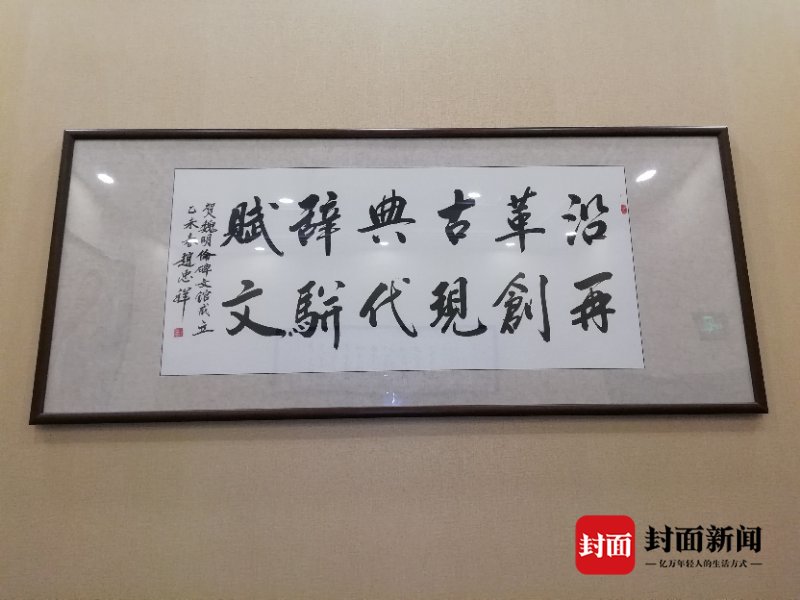 沿革古典辭賦
再創現代駢文
賀魏明倫碑文館成立
乙未春趙忠祥
封面
封面新闻
亿万年轻人的生活方式